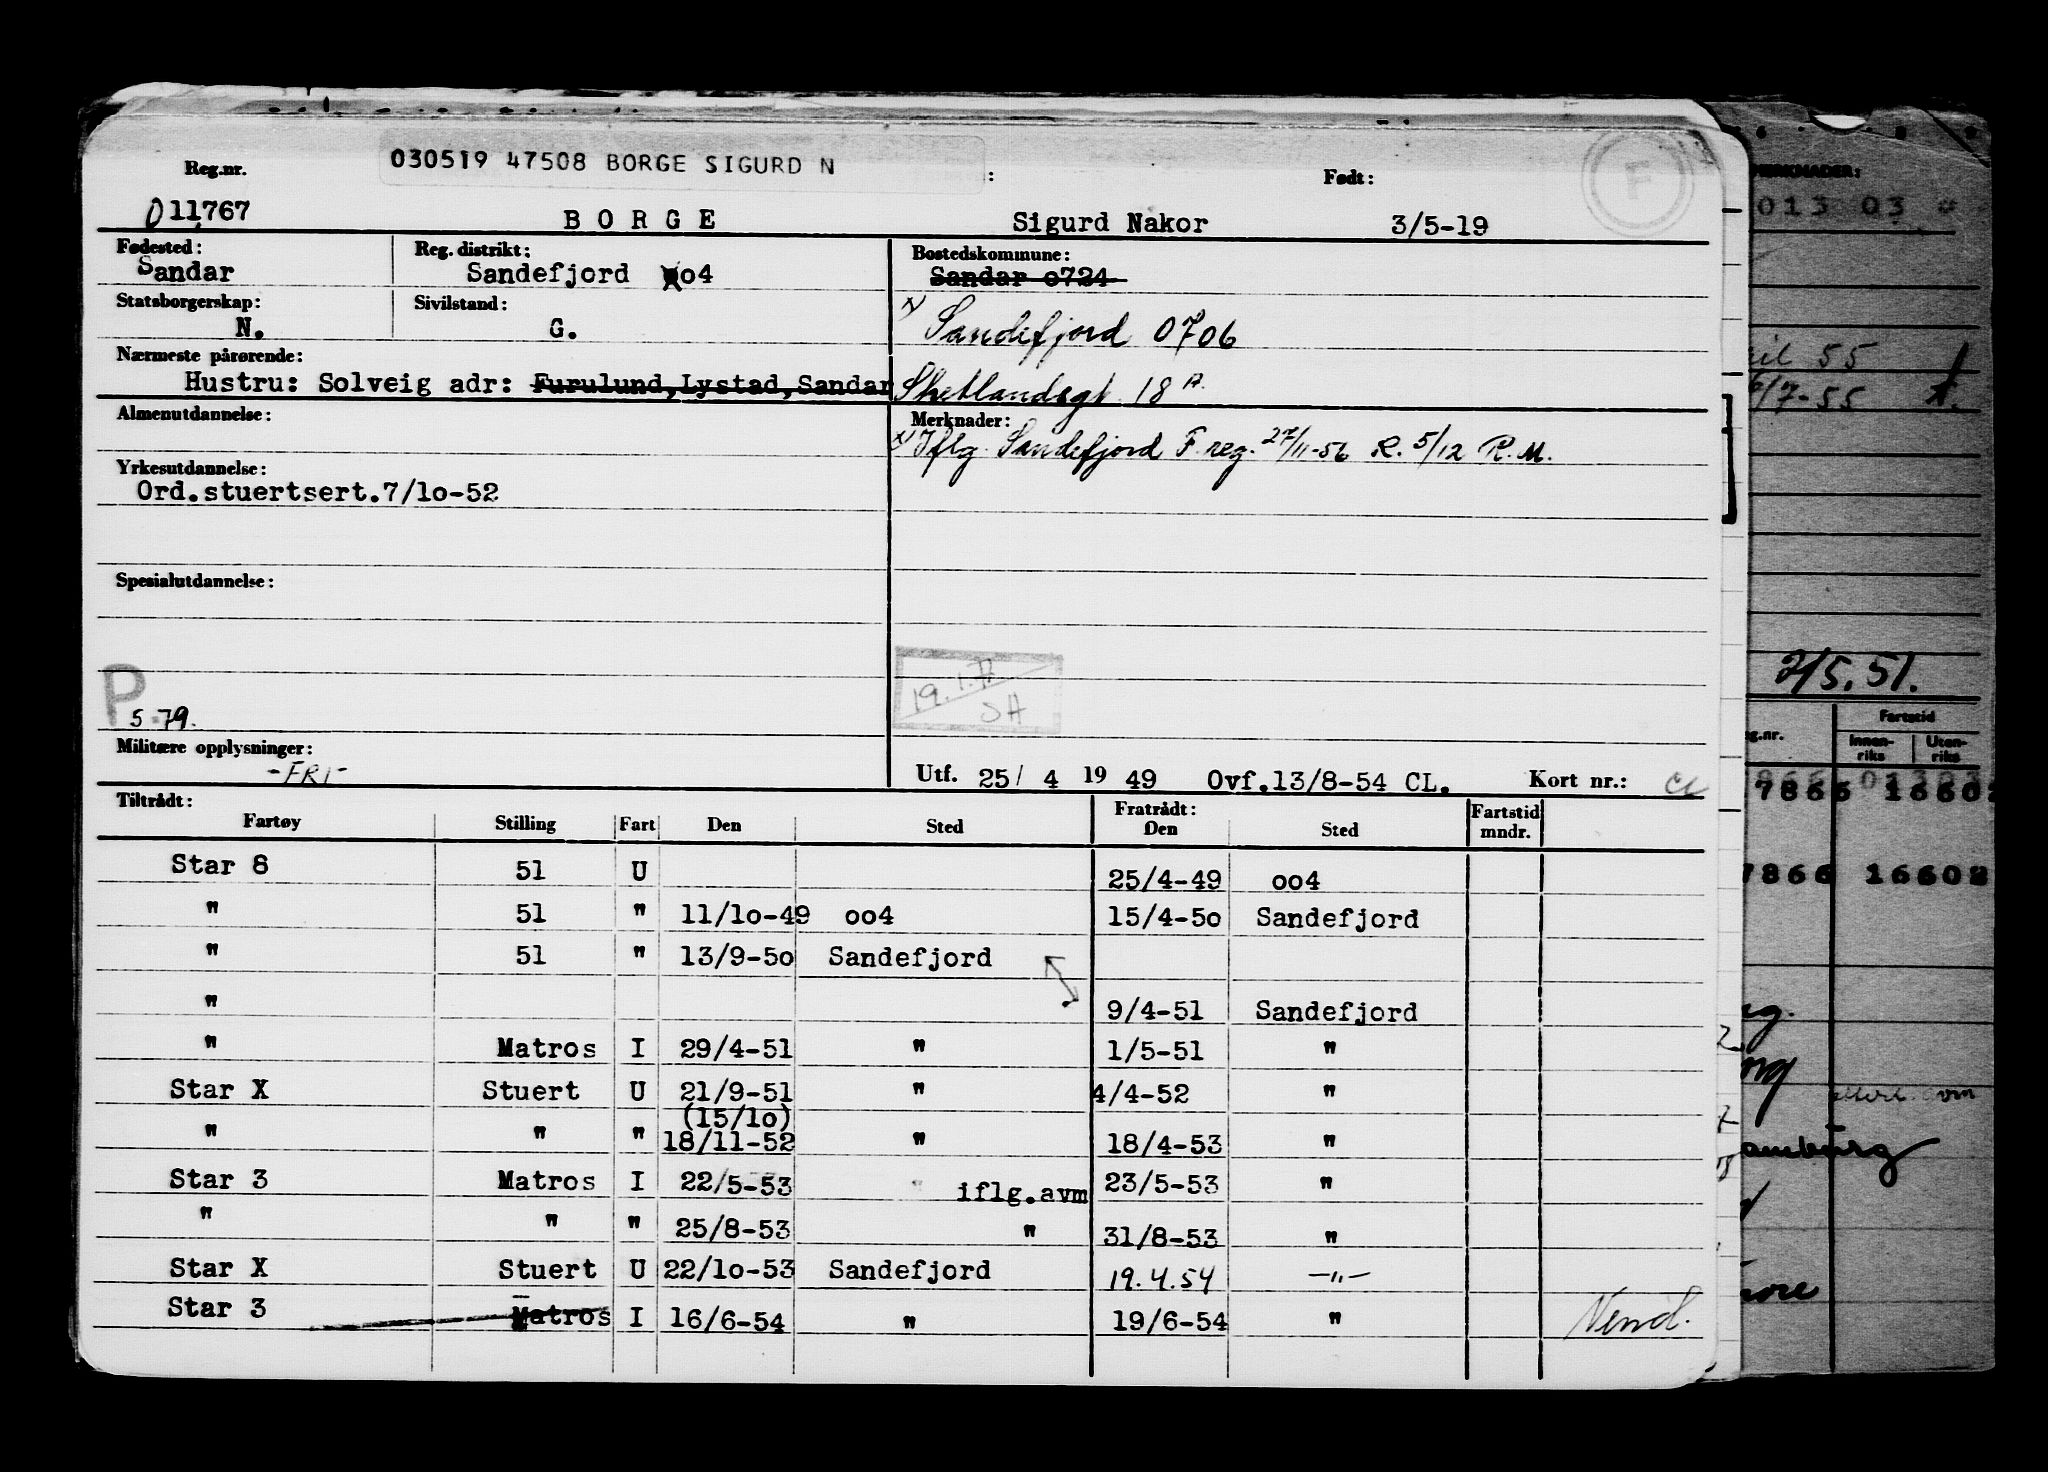 030519 47508 BORGE SIGURD N
Reg.nr. : Født:
011767 BORGE Sigurd Nakor 3/5-19
Fødested: Reg. distrikt: Bostedskommune:
Sandar Sandefjord oo4 Sandar o724
Statsborgerskap: Sivilstand:
N. G. x) Sandefjord 0706
Nærmeste pårørende:
Hustru: Solveig adr: Furulund,Lystad,Sandar Shetlandsgt. 18 A.
Almenutdannelse: Merknader:
x) Iflg. Sandefjord F.reg. 27/11-56 R. 5/12 R.M.
Yrkesutdannelse:
Ord.stuertsert.7/1o-52
Spesialutdannelse:
P.
5 79.
19.1.
SH
Militære opplysninger:
-FRI-
Utf. 25/ 4 19 49 Ovf.13/8-54 CL. Kort nr.: CL
Tiltrådt: Fratrådt: Fartstid
Fartøy Stilling Fart Den Sted Den Sted mndr.
Star 8 51 U 25/4-49 oo4
" 51 " 11/1o-49 oo4 15/4-5o Sandefjord
" 51 " 13/9-5o Sandefjord
" 9/4-51 Sandefjord
" Matros I 29/4-51 " 1/5-51 "
Star X Stuert U 21/9-51 " 4/4-52 "
(15/1o)
" " " 18/11-52 " 18/4-53 "
Star 3 Matros I 22/5-53 " iflg.avm 23/5-53 "
" " " 25/8-53 " 31/8-53 "
Star X Stuert U 22/1o-53 Sandefjord 19.4.54 -"-
Star 3 Matros I 16/6-54 " 19/6-54 "
Vend.
MERKNADER:
013 03
55
/7-55
2/5.51.
Fartstid
g.nr. Innen-riks Uten-riks
7866 16602
7866 16602
avm